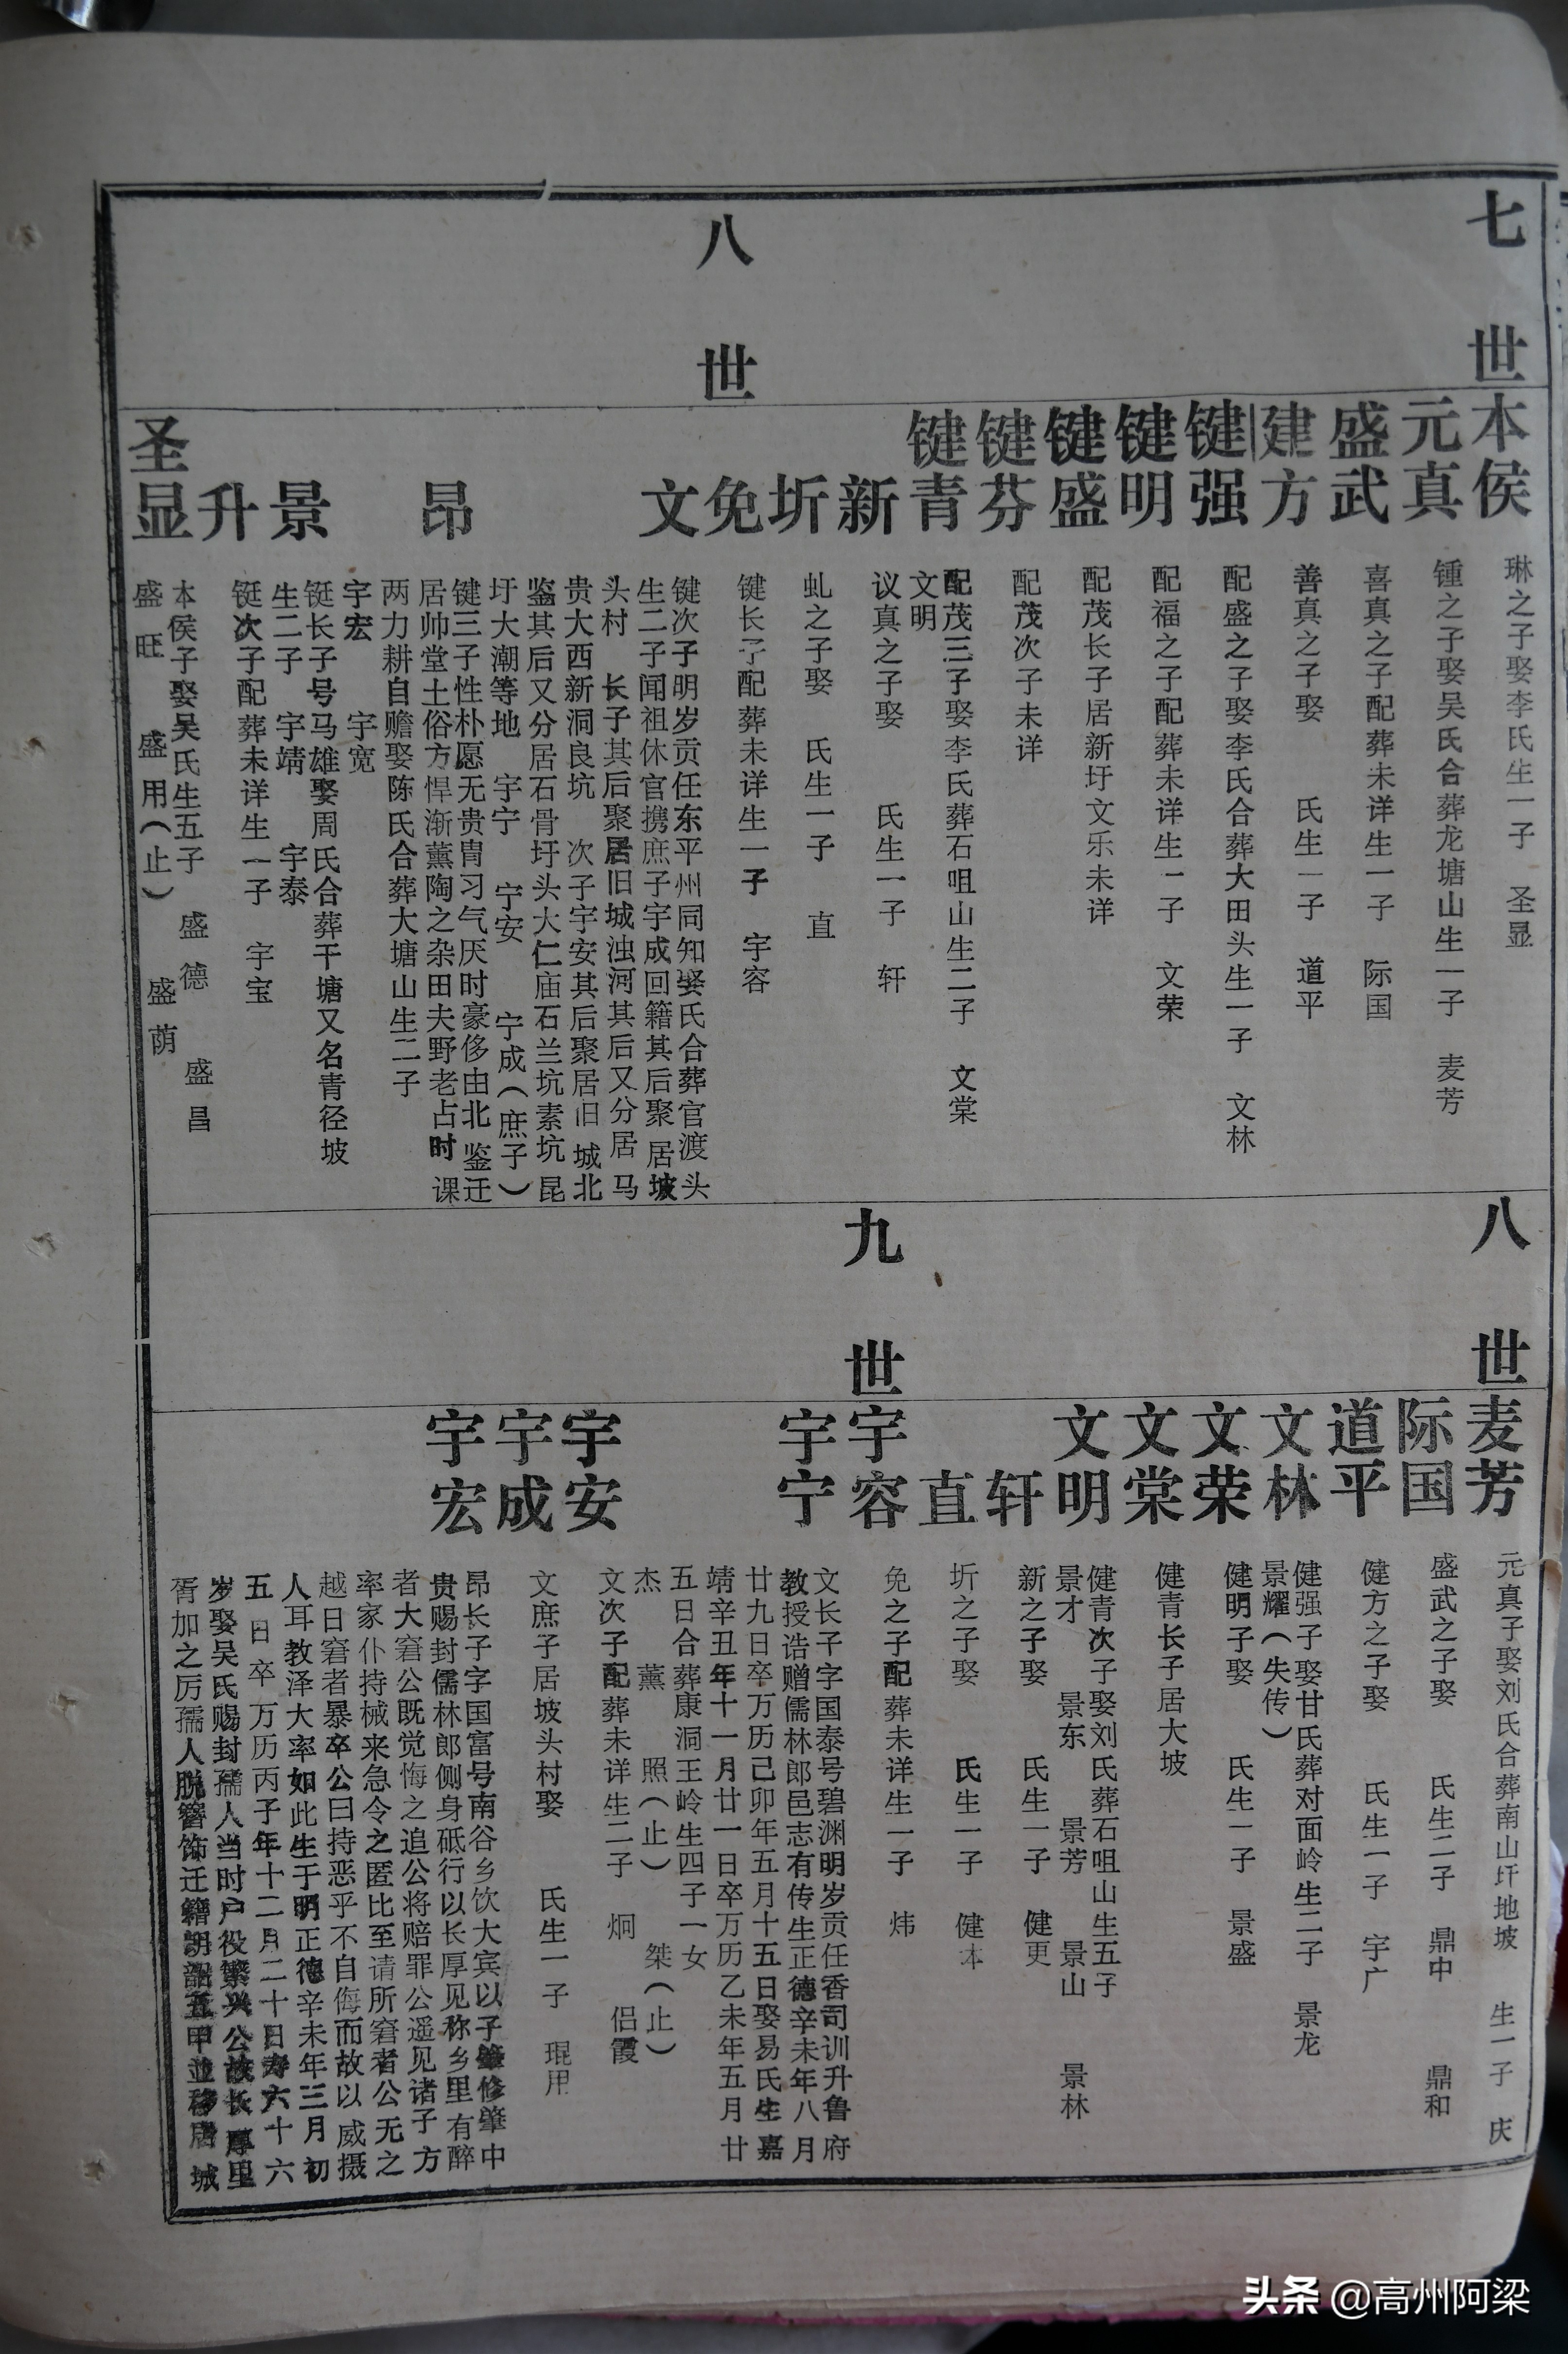 七世
本侯
琳之子娶李氏生一子 圣显
元真
锺之子娶吴氏合葬龙塘山生一子 麦芳
盛武
喜真之子配葬未详生一子 际国
建方
善真之子娶 氏生一子 道平
键强
配盛之子娶李氏合葬大田头生一子 文林
键明
配福之子配葬未详生一子 文荣
键盛
配茂长子居新圩文乐未详
键芬
配茂次子未详
键青
配茂三子娶李氏葬石咀山生二子 文棠
文明
八世
新
议真之子娶 氏生一子 轩
圻
虬之子娶 氏生一子 直
免
键长子配葬未详生一子 宇容
文
键次子明岁贡任东平州同知娶氏合葬官渡头
生二子闻祖休官携庶子宇成回籍其后聚居坡
头村 长子其后聚居旧城浊河其后又分居马
贵大西新洞良坑 次子宇安其后聚居旧城北
鉴其后又分居石骨圩头大仁庙石兰坑素坑昆
圩大潮等地 宇宁 宁安 宁成（庶子）
昂
键三子性朴愿无贵胄习气厌时豪侈由北鉴迁
居帅堂土俗方悍渐薰陶之杂田夫野老占时课
两力耕自赡娶陈氏合葬大塘山生二子
宇宏 宇宽
景
铤长子号马雄娶周氏合葬干塘又名青径坡
生二子 宇靖 宇泰
升
铤次子配葬未详生一子 宇宝
圣显
本侯子娶吴氏生五子 盛德 盛昌
盛旺 盛用（止） 盛荫
八世
麦芳
元真子娶刘氏合葬南山圩地坡 生一子 庆
际国
盛武之子娶 氏生二子 鼎中 鼎和
道平
健方之子娶 氏生一子 宇广
文林
健强子娶甘氏葬对面岭生二子 景龙
景耀（失传）
文荣
健明子娶 氏生一子 景盛
文棠
健青长子居大坡
文明
健青次子娶刘氏葬石咀山生五子
景才 景东 景芳 景山 景林
轩
新之子娶 氏生一子 健更
直
圻之子娶 氏生一子 健本
九世
宇容
免之子配葬未详生一子 炜
宇宁
文长子字国泰号碧渊明岁贡任香司训升鲁府
教授诰赠儒林郎邑志有传生正德辛未年八月
廿九日卒万历己卯年五月十五日娶易氏生嘉
靖辛丑年十一月廿一日卒万历乙未年五月廿
五日合葬康洞王岭生四子一女
杰 薰 照（止） 桀（止）
宇安
文次子配葬未详生二子 炯 侣霞
宇成
文庶子居坡头村娶 氏生一子 琨用
宇宏
昂长子字国富号南谷乡饮大宾以子肇修肇中
贵赐封儒林郎侧身砥行以长厚见称乡里有醉
者大窘公既觉悔之追公将赔罪公遥见诸子方
率家仆持械来急令之匿比至请所窘者公无之
越日窘者暴卒公曰持恶乎不自侮而故以威摄
人耳教泽大率如此生于明正德辛未年三月初
五日卒万历丙子年十二月二十日寿六十六
岁娶吴氏赐封孺人当时户役繁兴公故长厚里
胥加之厉孺人脱簪饰迁籍朗韶五甲並移居城
头条 @高州阿梁